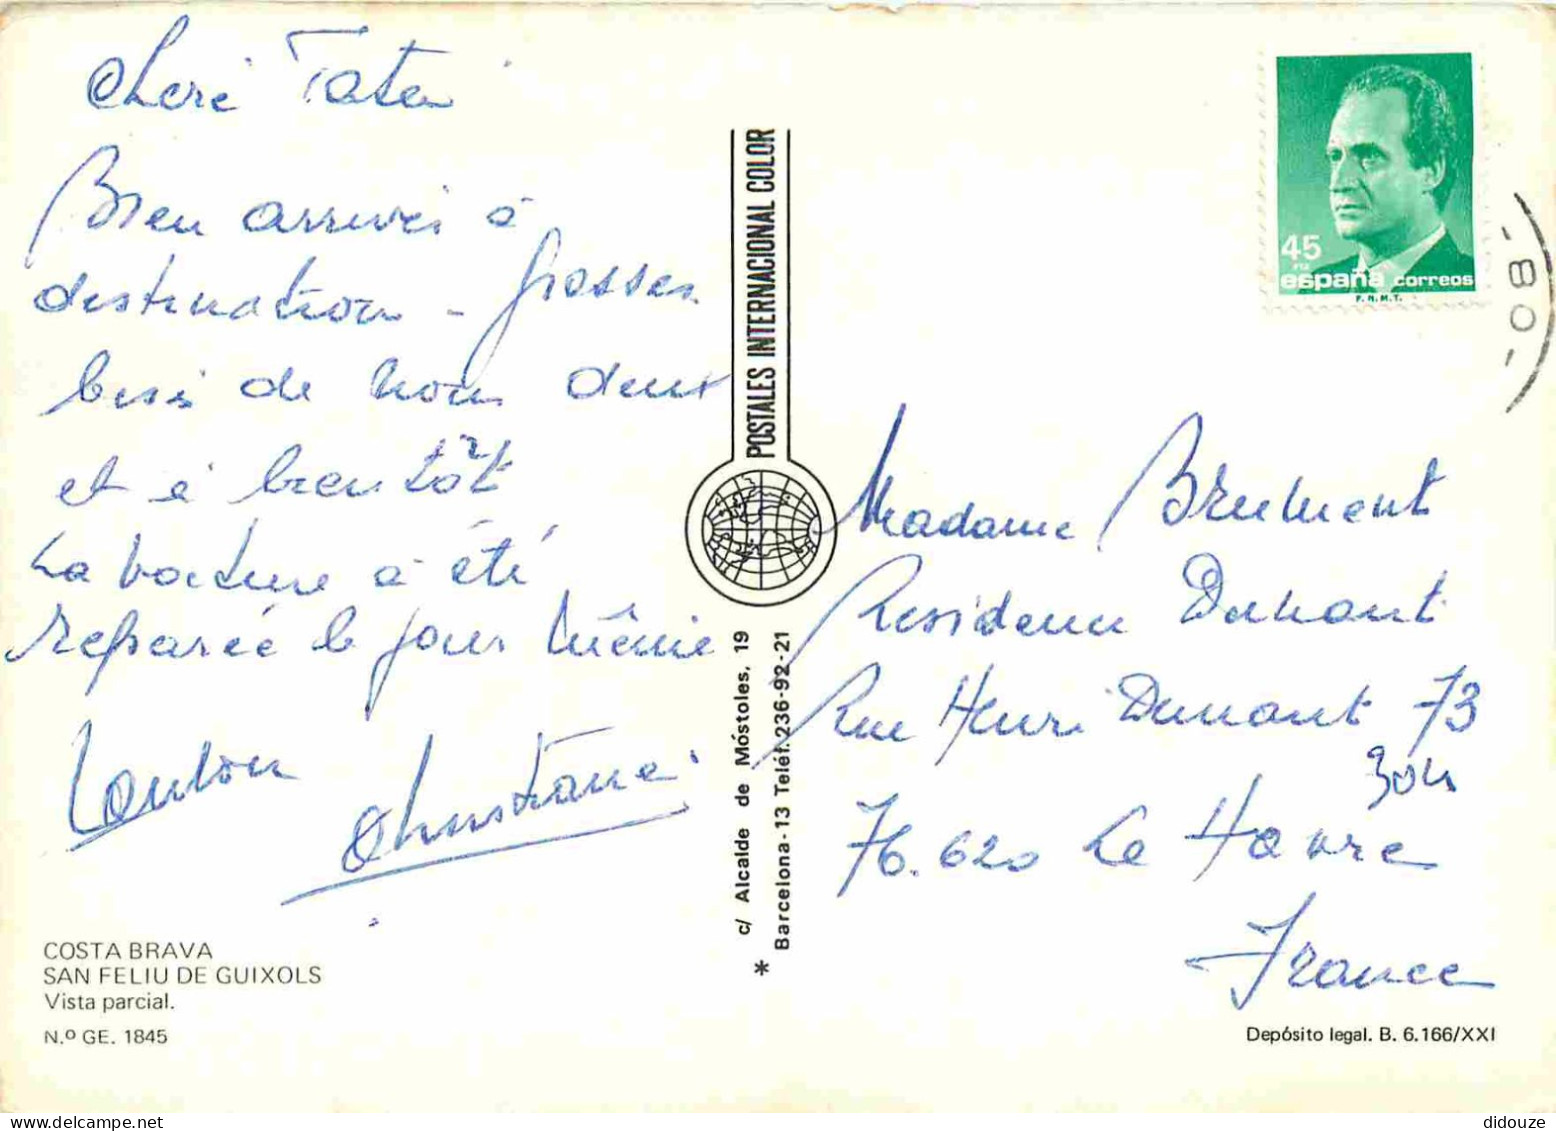 Bien arrivés à
destination - Grosses
bises de nous deux
et à bientôt
La voiture a été
réparée le jour même
Christiane
COSTA BRAVA
SAN FELIU DE GUIXOLS
Vista parcial.
N.º GE. 1845
POSTALES INTERNACIONAL COLOR
c/ Alcalde de Móstoles, 19
* Barcelona-13 Teléf. 236-92-21
45
PTA
españa correos
F.N.M.T.
-80-
Madame Brument
Résidence Dunant
Rue Henri Dunant 73
76.620 Le Havre
France
Depósito legal. B. 6.166/XXI
didouze